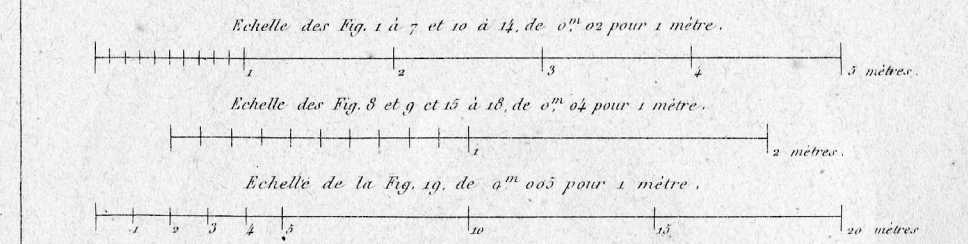 Echelle des Fig. 1 à 7 et 10 à 14, de 0,m 02 pour 1 mètre.
1 2 3 4 5 mètres.
Echelle des Fig. 8 et 9 et 15 à 18, de 0,m 04 pour 1 mètre.
1 2 mètres.
Echelle de la Fig. 19, de 0m 005 pour 1 mètre.
1 2 3 4 5 10 15 20 mètres